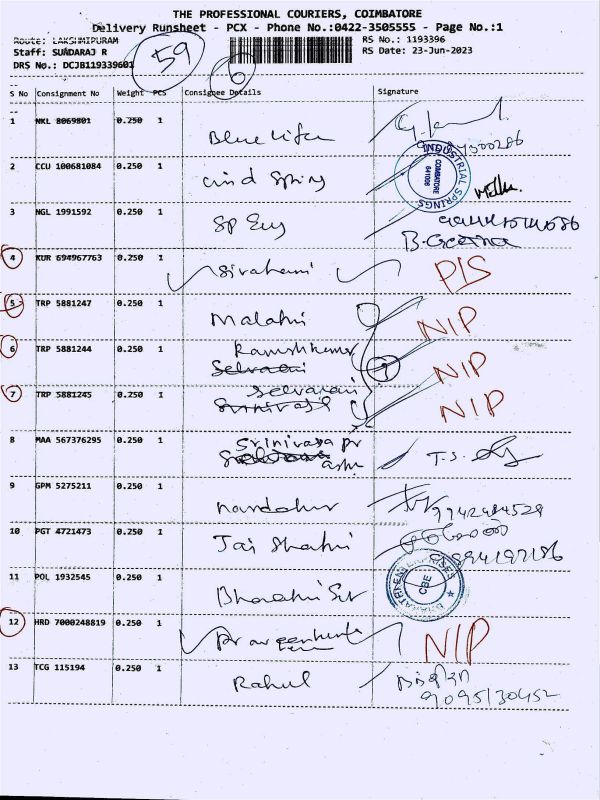 THE PROFESSIONAL COURIERS, COIMBATORE
Delivery Runsheet - PCX - Phone No.:0422-3505555 - Page No.:1
Route: LAKSHMIPURAM RS No.: 1193396
Staff: SUNDARAJ R RS Date: 23-Jun-2023
DRS No.: DCJB119339601
59
6
S No Consignment No Weight PCS Consignee Details Signature
1 NKL 8069801 0.250 1
2 CCU 100681084 0.250 1 cind Spring
INDUSTRIAL SPRINGS COIMBATORE 641006
3 NGL 1991592 0.250 1 SP Eng
B. Geetha
4 KUR 694967763 0.250 1 Sivahami P/S
5 TRP 5881247 0.250 1 Malathi NIP
6 TRP 5881244 0.250 1 Ramshkumar NIP
Selvarani
7 TRP 5881245 0.250 1 Selvarani NIP
Srinivasa
8 MAA 567376295 0.250 1 Srinivasa pr T.S.
9 GPM 5275211 0.250 1 nandakur 9942494529
10 PGT 4721473 0.250 1 Jai Shakthi
11 POL 1932545 0.250 1 Bharathi
CBE
12 HRD 7000248819 0.250 1 Praveenkumar NIP
13 TCG 115194 0.250 1 Rahul
9095130452